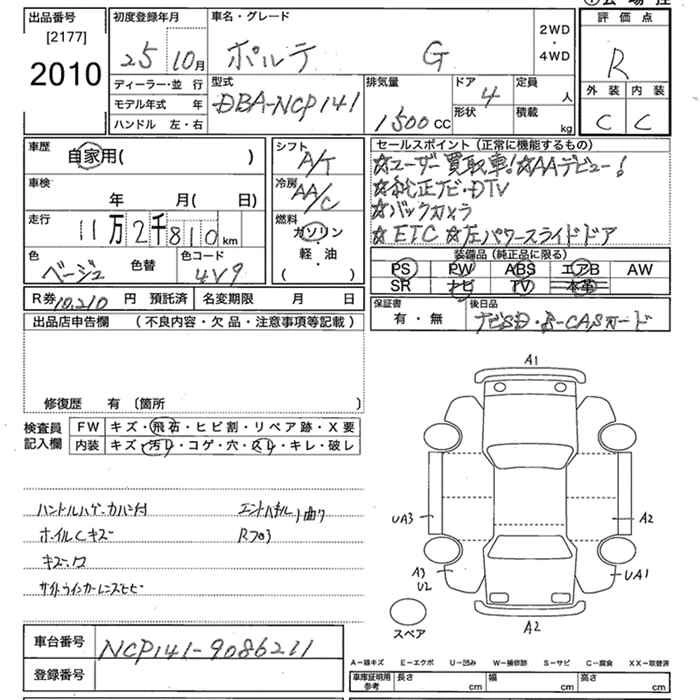 出品番号
[2177]
2010
初度登録年月
25 10月
車名・グレード
ポルテ G
2WD
・
4WD
評価点
R
外装 内装
C C
ディーラー・並 行
モデル年式 年
ハンドル 左・右
型式
DBA-NCP141
排気量
1500cc
ドア
4
形状
定員
人
積載
kg
車歴
自家用( )
車検
年 月( 日)
走行
11万2千810km
色
ベージュ
色替
色コード
4V9
シフト
A/T
冷房
AA/C
燃料
ガソリン
・
軽・油
( )
セールスポイント(正常に機能するもの)
☆ユーザー買取車!☆AAデビュー!
☆純正ナビ・DTV
☆バックカメラ
☆ETC ☆左パワースライドドア
装備品(純正品に限る)
PS PW ABS エアB AW
SR ナビ TV 本革
R券10,210円 預託済 名変期限 月 日
保証書
有・無
後日品
ナビSD・B-CASカード
出品店申告欄 (不良内容・欠品・注意事項等記載)
修復歴 有 (箇所 )
検査員
記入欄
FW キズ・飛石・ヒビ割・リペア跡・X要
内装 キズ・汚れ・コゲ・穴・スレ・キレ・破レ
ハンドルハゲ・カバー付
ホイルCキズ
サイドウインカーレンズヒビ
A1
UA3
A2
A3
U2
UA1
A2
スペア
車台番号
NCP141-9086211
登録番号
A－線キズ E－エクボ U－凹み W－補修跡 S－サビ C－腐食 XX－取替済
車庫証明用
参考
長さ cm
幅 cm
高さ cm